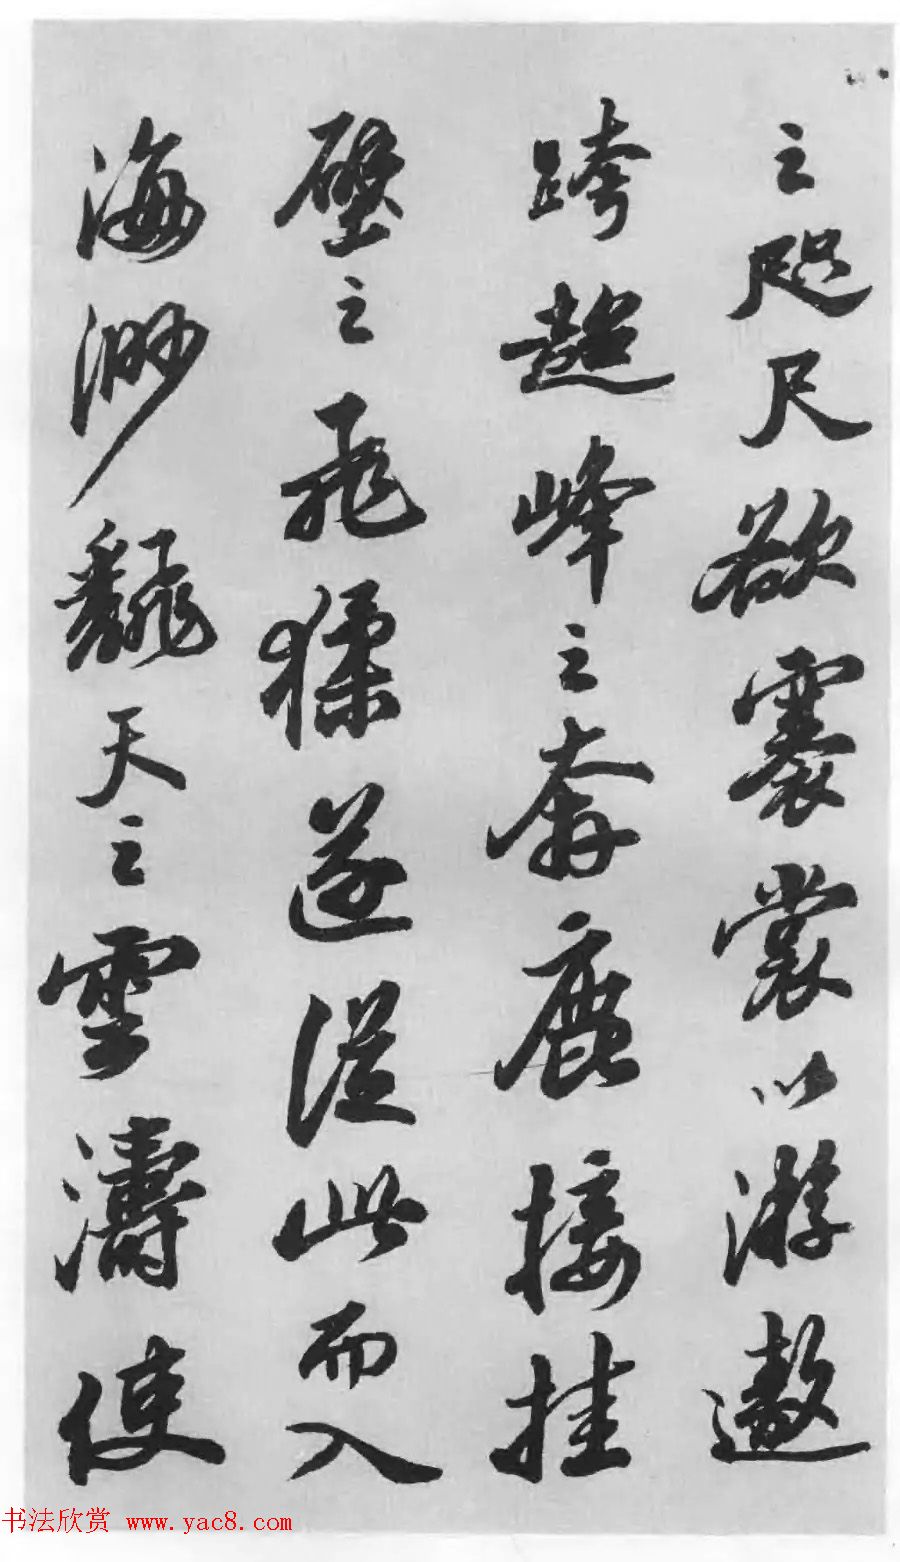 之咫尺欲褰裳以游遨
跨超峰之奔鹿接挂
壁之飛猱遂從此而入
海渺翻天之雲濤使
书法欣赏 www.yac8.com